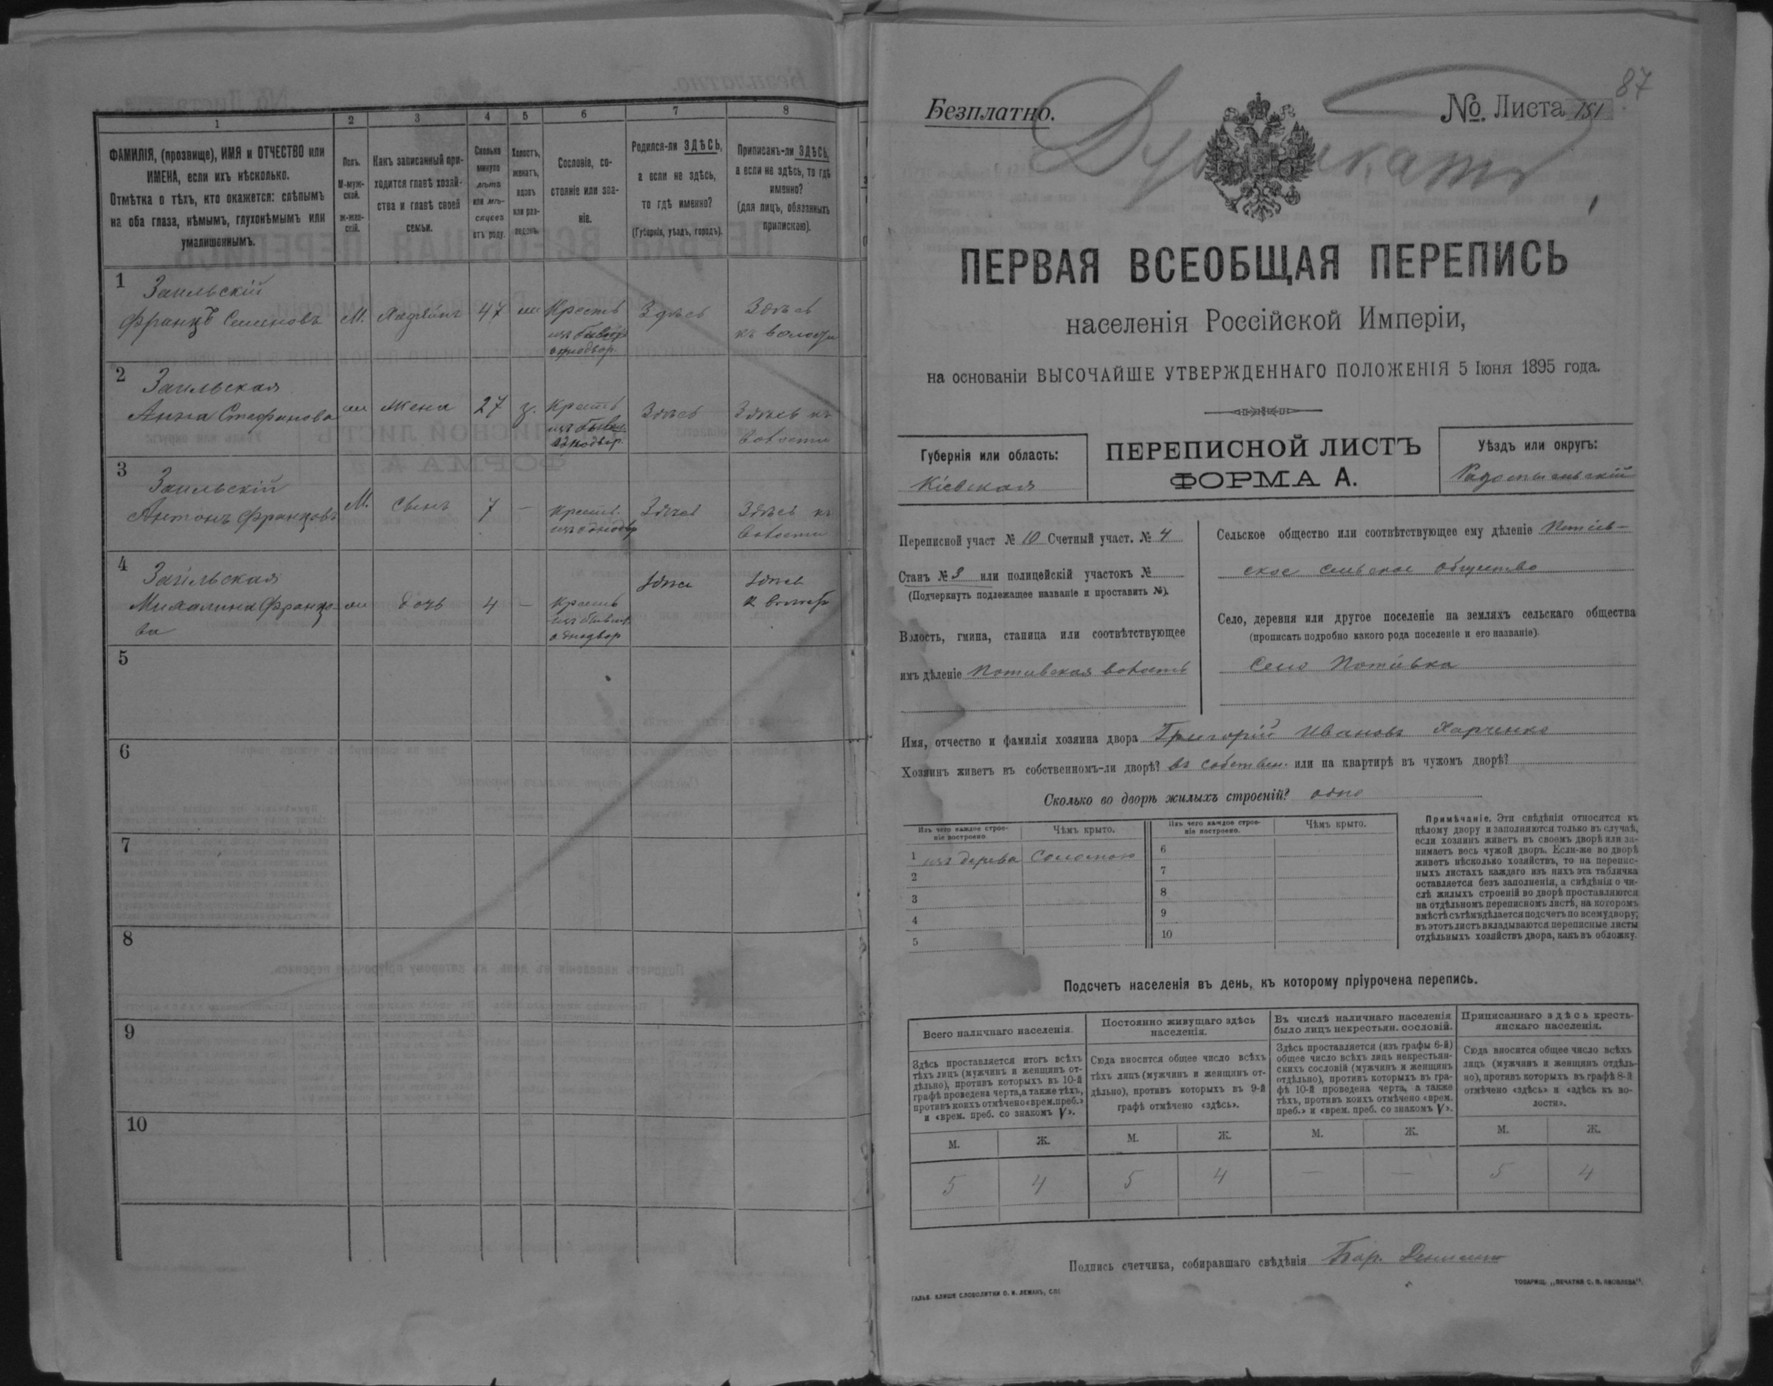 1
2
3
4
5
6
7
8
ФАМИЛІЯ, (прозвище), ИМЯ и ОТЧЕСТВО или
ИМЕНА, если ихъ нѣсколько.
Отмѣтка о тѣхъ, кто окажется: слѣпымъ
на оба глаза, нѣмымъ, глухонѣмымъ или
умалишеннымъ.
Полъ.
М-муж-
ской.
ж-жен-
скій.
Какъ записанный при-
ходится главѣ хозяй-
ства и главѣ своей
семьи.
Сколько
минуло
лѣтъ
или мѣ-
сяцевъ
отъ роду.
Холостъ,
женатъ,
вдовъ
или раз-
веденъ.
Сословіе, со-
стояніе или зва-
ніе.
Родился-ли ЗДѢСЬ,
а если не здѣсь,
то гдѣ именно?
(Губернія, уѣздъ, городъ).
Приписанъ-ли ЗДѢСЬ,
а если не здѣсь, то гдѣ
именно?
(для лицъ, обязанныхъ
припискою).
1
Заильскій
Францъ Семеновъ
М.
47
Крест
Здѣсь
Здѣсь
къ волости
2
Заильская
Анна Стефанова
жена
27
Крест
однодвор.
Здѣсь
Здѣсь къ
волости
3
Заильскій
Антонъ Францовъ
М.
Сынъ
7
—
Крест.
Здѣсь
Здѣсь къ
волости
4
Заильская
Михалина Францо-
ва
дочь
4
—
Крест
однодвор
Здѣсь
Здѣсь
5
6
7
8
9
10
87
Безплатно.
Дубликатъ
№ Листа 151
ПЕРВАЯ ВСЕОБЩАЯ ПЕРЕПИСЬ
населенія Россійской Имперіи,
на основаніи ВЫСОЧАЙШЕ УТВЕРЖДЕННАГО ПОЛОЖЕНІЯ 5 Іюня 1895 года.
Губернія или область:
Кіевская
ПЕРЕПИСНОЙ ЛИСТЪ
ФОРМА А.
Уѣздъ или округъ:
Радомысльскій
Переписной участ № 10 Счетный участ. № 4
Станъ № 3 или полицейскій участокъ №
(Подчеркнуть подлежащее названіе и проставить №).
Волость, гмина, станица или соотвѣтствующее
имъ дѣленіе Потіевская волость
Сельское общество или соотвѣтствующее ему дѣленіе Потіев-
ское сельское общество
Село, деревня или другое поселеніе на земляхъ сельскаго общества
(прописать подробно какого рода поселеніе и его названіе).
Село Потіевка
Имя, отчество и фамилія хозяина двора Григорій Ивановъ Харченко
Хозяинъ живетъ въ собственномъ-ли дворѣ? въ собствен. или на квартирѣ въ чужомъ дворѣ?
Сколько во дворѣ жилыхъ строеній? одно
Изъ чего каждое строе-
ніе построено.
Чѣмъ крыто.
Изъ чего каждое строе-
ніе построено.
Чѣмъ крыто.
1 изъ дерева Соломою
2
3
4
5
6
7
8
9
10
Примѣчаніе. Эти свѣдѣнія относятся къ
цѣлому двору и заполняются только въ случаѣ,
если хозяинъ живетъ въ своемъ дворѣ или за-
нимаетъ весь чужой дворъ. Если-же во дворѣ
живетъ нѣсколько хозяйствъ, то на перепис-
ныхъ листахъ каждаго изъ нихъ эта табличка
оставляется безъ заполненія, а свѣдѣнія о чи-
слѣ жилыхъ строеній во дворѣ проставляются
на отдѣльномъ переписномъ листѣ, на которомъ
вмѣстѣ съ тѣмъ дѣлается подсчетъ по всему двору;
въ этотъ листъ вкладываются переписные листы
отдѣльныхъ хозяйствъ двора, какъ въ обложку.
Подсчетъ населенія въ день, къ которому пріурочена перепись.
Всего наличнаго населенія.
Здѣсь проставляется итогъ всѣхъ
тѣхъ лицъ (мужчинъ и женщинъ от-
дѣльно), противъ которыхъ въ 10-й
графѣ проведена черта, а также тѣхъ,
противъ коихъ отмѣчено «врем. преб.»
и «врем. преб. со знакомъ V».
Постоянно живущаго здѣсь
населенія.
Сюда вносится общее число всѣхъ
тѣхъ лицъ (мужчинъ и женщинъ от-
дѣльно), противъ которыхъ въ 9-й
графѣ отмѣчено «здѣсь».
Въ числѣ наличнаго населенія
было лицъ некрестьян. сословій.
Здѣсь проставляется (изъ графы 6-й)
общее число всѣхъ лицъ некрестьян-
скихъ сословій (мужчинъ и женщинъ
отдѣльно), противъ которыхъ въ гра-
фѣ 10-й проведена черта, а также
тѣхъ, противъ коихъ отмѣчено «врем.
преб.» и «врем. преб. со знакомъ V».
Приписаннаго здѣсь кресть-
янскаго населенія.
Сюда вносится общее число всѣхъ
лицъ (мужчинъ и женщинъ отдѣль-
но), противъ которыхъ въ графѣ 8-й
отмѣчено «здѣсь» и «здѣсь къ во-
лости».
М. Ж. М. Ж. М. Ж. М. Ж.
5 4 5 4 — — 5 4
Подпись счетчика, собиравшаго свѣдѣнія
ГАЛЬВ. КЛИШЕ СЛОВОЛИТНИ О. И. ЛЕМАНЪ, СПБ
ТОВАРИЩ. „ПЕЧАТНЯ С. П. ЯКОВЛЕВА".